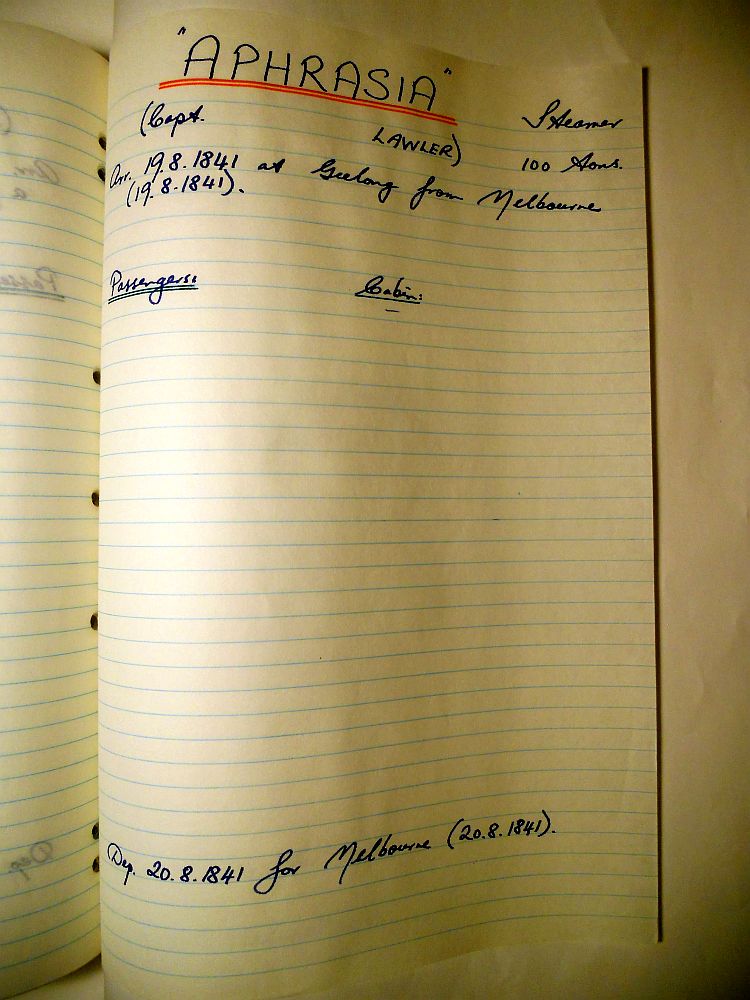 "APHRASIA"
(Capt. LAWLER) Steamer
100 tons.
Arr. 19.8.1841 at Geelong from Melbourne
(19.8.1841).
Passengers: Cabin:
Dep. 20.8.1841 for Melbourne (20.8.1841).